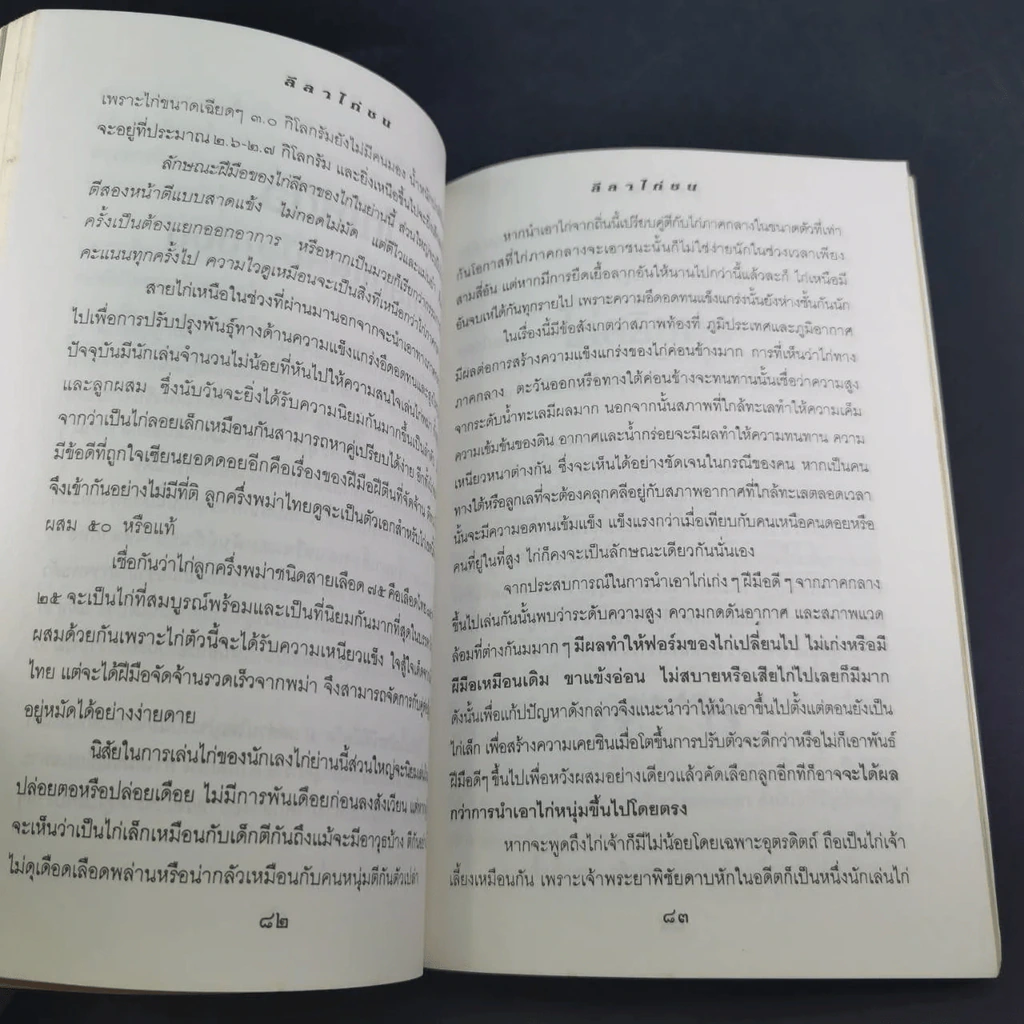 ลีลาไก่ชน
เพราะไก่ขนาดเฉียดๆ ๓.๐ กิโลกรัมยังไม่มีคนมอง
จะอยู่ที่ประมาณ ๒.๖-๒.๗ กิโลกรัม และยิ่งเหนือขึ้นไปจะยิ่ง
ลักษณะฝีมือของไก่ลีลาของไก่ในย่านนี้ ส่วนใหญ่จะ
ตีสองหน้าตีแบบสาดแข้ง ไม่กอดไม่มัด แต่ตีไวและแม่นยำ
ครั้งเป็นต้องแยกออกอาการ หรือหากเป็นมวยก็เรียกว่า
คะแนนทุกครั้งไป ความไวดูเหมือนจะเป็นสิ่งที่เหนือกว่าไก่
สายไก่เหนือในช่วงที่ผ่านมานอกจากจะนำเอาทาง
ไปเพื่อการปรับปรุงพันธุ์ทางด้านความแข็งแกร่งอึดอดทนและ
ปัจจุบันมีนักเล่นจำนวนไม่น้อยที่หันไปให้ความสนใจเล่นไก่พม่า
และลูกผสม ซึ่งนับวันจะยิ่งได้รับความนิยมกันมากขึ้นเป็นลำดับ
จากว่าเป็นไก่ลอยเล็กเหมือนกันสามารถหาคู่เปรียบได้ง่าย อีกทั้ง
มีข้อดีที่ถูกใจเซียนยอดดอยอีกคือเรื่องของฝีมือฝีตีนที่จัดจ้าน
จึงเข้ากันอย่างไม่มีที่ติ ลูกครึ่งพม่าไทยดูจะเป็นตัวเอกสำหรับ
ผสม ๕๐ หรือแท้
เชื่อกันว่าไก่ลูกครึ่งพม่าชนิดสายเลือด ๗๕ คือเลือดไทย
๒๕ จะเป็นไก่ที่สมบูรณ์พร้อมและเป็นที่นิยมกันมากที่สุดใน
ผสมด้วยกันเพราะไก่ตัวนี้จะได้รับความเหนียวแข็ง ใจสู้ใจเด็ด
ไทย แต่จะได้ฝีมือจัดจ้านรวดเร็วจากพม่า จึงสามารถจัดการกับ
อยู่หมัดได้อย่างง่ายดาย
นิสัยในการเล่นไก่ของนักเลงไก่ย่านนี้ส่วนใหญ่จะนิยม
ปล่อยตอหรือปล่อยเดือย ไม่มีการพันเดือยก่อนลงสังเวียน
จะเห็นว่าเป็นไก่เล็กเหมือนกับเด็กตีกันถึงแม้จะมีอาวุธบ้าง
ไม่ดุเดือดเลือดพล่านหรือน่ากลัวเหมือนกับคนหนุ่มตีกันตัวเปล่า
๘๒
ลีลาไก่ชน
หากนำเอาไก่จากถิ่นนี้เปรียบคู่ตีกับไก่ภาคกลางในขนาดตัวที่เท่า
กันโอกาสที่ไก่ภาคกลางจะเอาชนะนั้นก็ไม่ใช่ง่ายนักในช่วงเวลาเพียง
สามสี่อัน แต่หากมีการยืดเยื้อลากอันให้นานไปกว่านี้แล้วละก็ ไก่เหนือมี
อันจบเห่ได้กันทุกรายไป เพราะความอึดอดทนแข็งแกร่งนั้นยังห่างชั้นกันนัก
ในเรื่องนี้มีข้อสังเกตว่าสภาพท้องที่ ภูมิประเทศและภูมิอากาศ
มีผลต่อการสร้างความแข็งแกร่งของไก่ค่อนข้างมาก การที่เห็นว่าไก่ทาง
ภาคกลาง ตะวันออกหรือทางใต้ค่อนข้างจะทนทานนั้นเชื่อว่าความสูง
จากระดับน้ำทะเลมีผลมาก นอกจากนั้นสภาพที่ใกล้ทะเลทำให้ความเค็ม
ความเข้มข้นของดิน อากาศและน้ำกร่อยจะมีผลทำให้ความทนทาน ความ
เหนียวหนาต่างกัน ซึ่งจะเห็นได้อย่างชัดเจนในกรณีของคน หากเป็นคน
ทางใต้หรือลูกเลที่จะต้องคลุกคลีอยู่กับสภาพอากาศที่ใกล้ทะเลตลอดเวลา
นั้นจะมีความอดทนเข้มแข็ง แข็งแรงกว่าเมื่อเทียบกับคนเหนือคนดอยหรือ
คนที่ยู่ในที่สูง ไก่ก็คงจะเป็นลักษณะเดียวกันนั่นเอง
จากประสบการณ์ในการนำเอาไก่เก่ง ๆ ฝีมือดี ๆ จากภาคกลาง
ขึ้นไปเล่นกันนั้นพบว่าระดับความสูง ความกดดันอากาศ และสภาพแวด
ล้อมที่ต่างกันมมากๆ มีผลทำให้ฟอร์มของไก่เปลี่ยนไป ไม่เก่งหรือมี
ฝีมือเหมือนเดิม ขาแข้งอ่อน ไม่สบายหรือเสียไก่ไปเลยก็มีมาก
ดังนั้นเพื่อแก้ปปัญหาดังกล่าวจึงแนะนำว่าให้นำเอาขึ้นไปตั้งแต่ตอนยังเป็น
ไก่เล็ก เพื่อสร้างความเคยชินเมื่อโตขึ้นการปรับตัวจะดีกว่าหรือไม่ก็เอาพันธ์
ฝีมือดีๆ ขึ้นไปเพื่อหวังผสมอย่างเดียวแล้วคัดเลือกลูกอีกทีก็อาจจะได้ผล
กว่าการนำเอาไก่หนุ่มขึ้นไปโดยตรง
หากจะพูดถึงไก่เจ้าก็มีไม่น้อยโดยเฉพาะอุตรดิตถ์ ถือเป็นไก่เจ้า
เลี้ยงเหมือนกัน เพราะเจ้าพระยาพิชัยดาบหักในอดีตก็เป็นหนึ่งนักเล่นไก่
๘๓